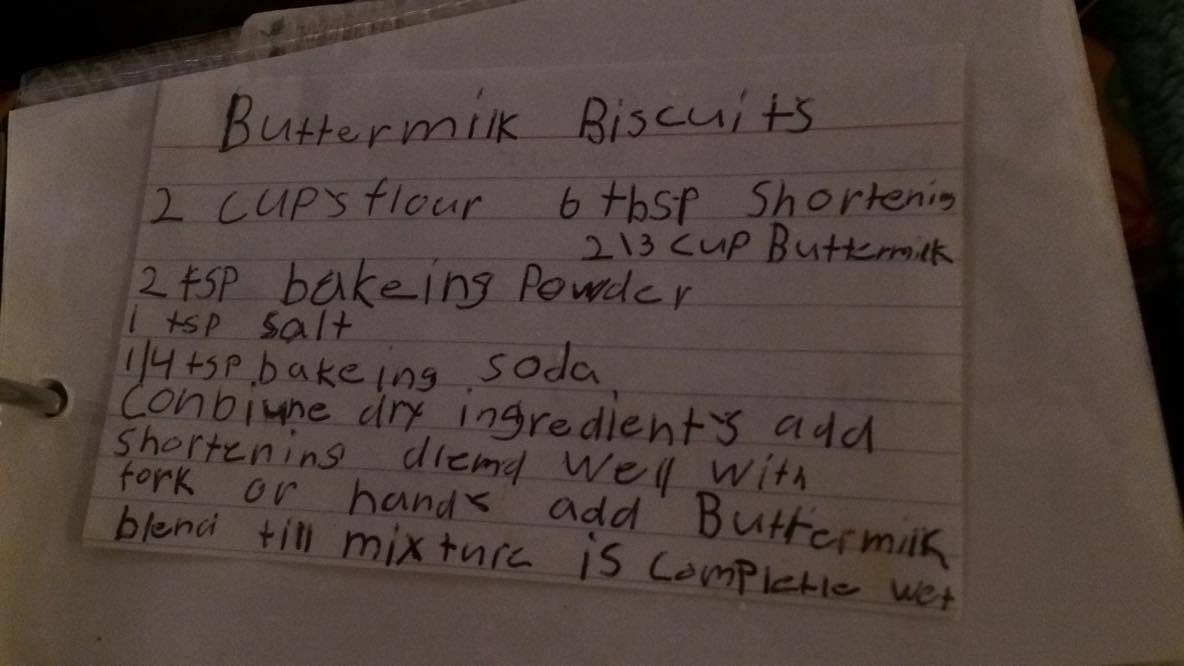 Buttermilk Biscuits
2 cups flour 6 tbsp Shortenin
2\3 cup Buttermilk
2 tsp bakeing Powder
1 tsp salt
1/4 tsp bakeing soda
Conbiune dry ingredients add
shortening dlemd well with
fork or hands add Buttermilk
blend till mixture is completle wet